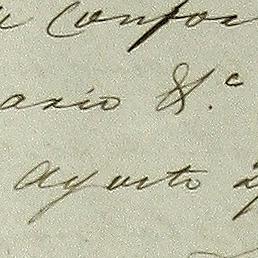 Confor
ario &.c
Agosto 2